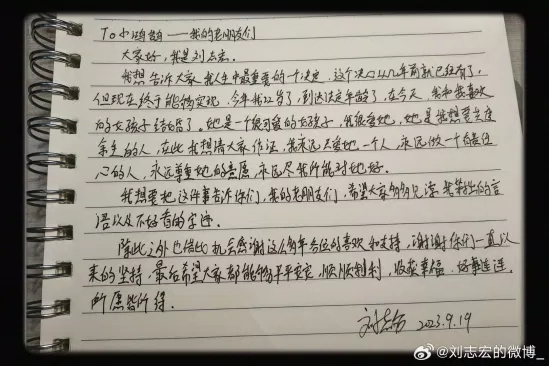 To 小鸿鹄——我的老朋友们
大家好，我是刘志宏。
我想告诉大家我人生中最重要的一个决定，这个决心几年前就已经有了，
但现在终于能够实现，今年我22岁了，到达法定年龄了，在今天，我和我喜欢
的女孩子结婚了。她是一个很可爱的女孩子，我很爱她，她是我想要共度
余生的人，在此我想请大家作证，我永远只爱她一个人，永远做一个有责任
心的人，永远尊重她的意愿，永远尽我所能对她好。
我想要把这件事告诉你们，我的老朋友们，希望大家多多见谅我笨拙的言
语以及不好看的字迹。
除此之外也借此机会感谢这么多年各位的喜欢和支持，谢谢你们一直以
来的坚持，最后希望大家都能够平平安安，顺顺利利，收获幸福，好事连连，
所愿皆所得。
刘志宏 2023.9.19
@刘志宏的微博_